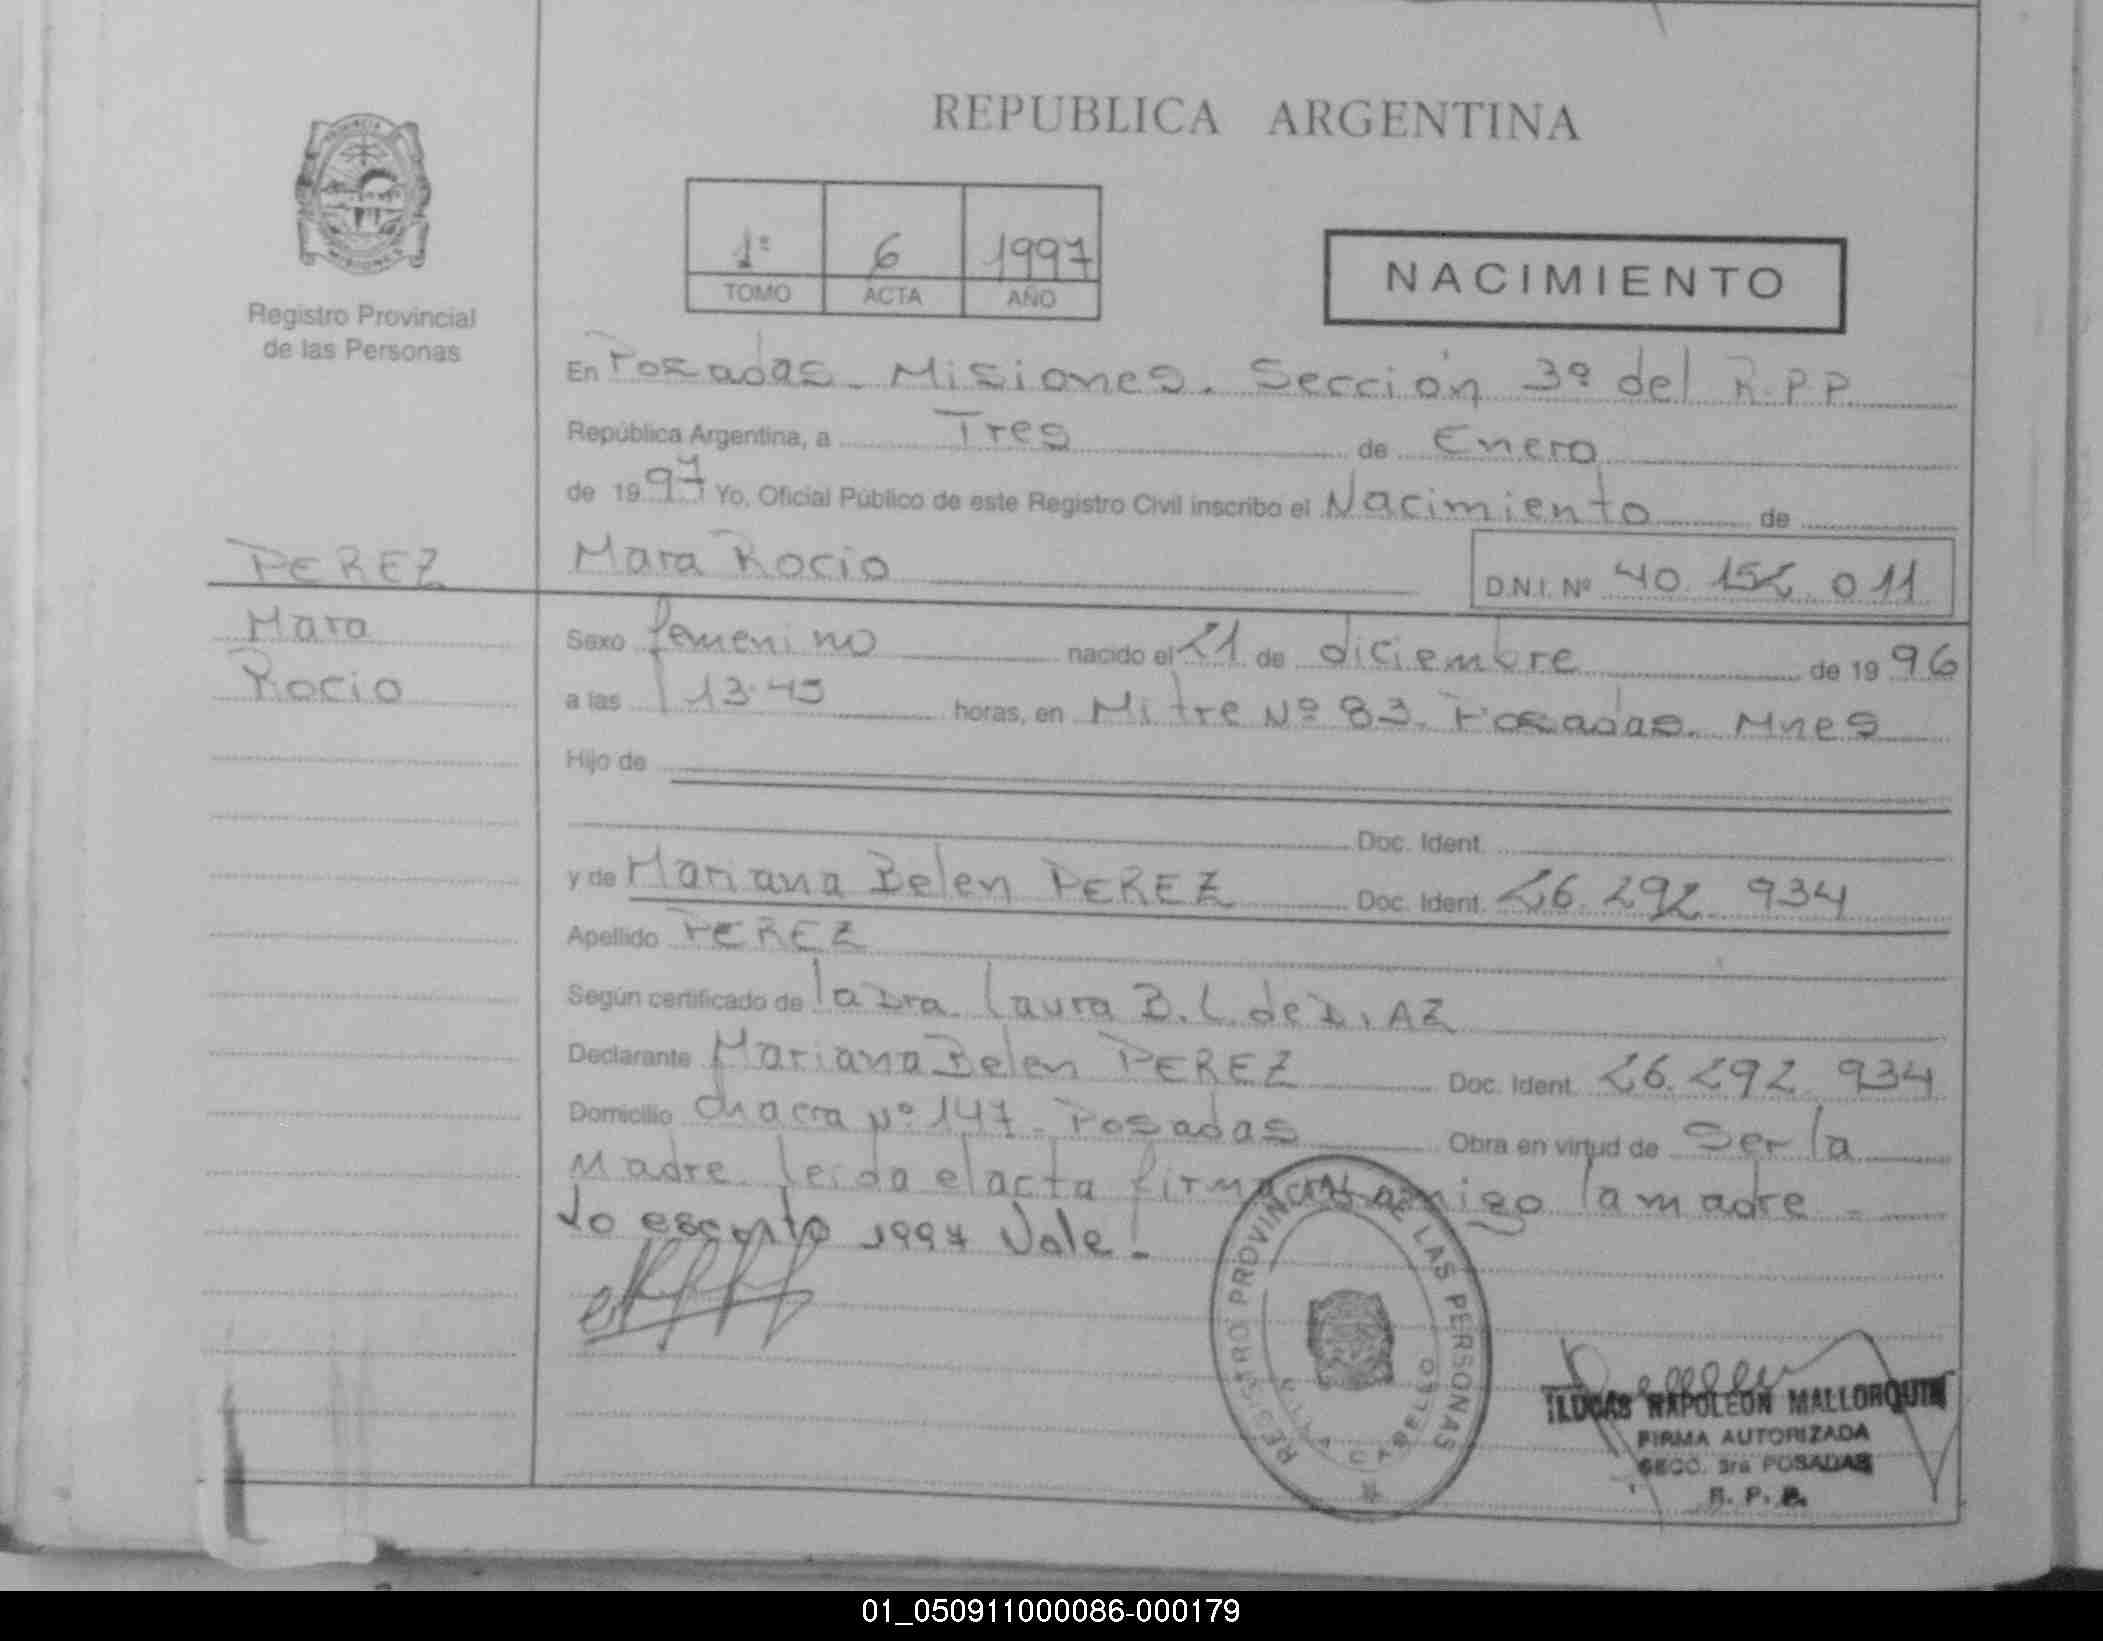 REPUBLICA ARGENTINA
PROVINCIA
MISIONES
Registro Provincial
de las Personas
1º 6 1997
TOMO ACTA AÑO
NACIMIENTO
En Posadas. Misiones. Sección 3º del R.P.P.
República Argentina, a Tres de Enero
de 1997 Yo, Oficial Público de este Registro Civil inscribo el Nacimiento de
PEREZ
Mara
Rocio
Mara Rocio D.N.I. Nº 40.152.011
Sexo femenino nacido el 21 de diciembre de 1996
a las 13.45 horas, en Mitre Nº 83. Posadas. Mnes
Hijo de
Doc. Ident.
y de Mariana Belen PEREZ Doc. Ident. 26.292.934
Apellido PEREZ
Según certificado de la Dra. Laura B. L. de DIAZ
Declarante Mariana Belen PEREZ Doc. Ident. 26.292.934
Domicilio Chacra Nº 147. Posadas Obra en virtud de Ser la
Madre. leida el acta firma conmigo la madre.
lo escrito 1997 Vale.
REGISTRO PROVINCIAL DE LAS PERSONAS
LUCAS NAPOLEON MALLORQUIN
FIRMA AUTORIZADA
SECC. 3ra POSADAS
R. P. P.
01_050911000086-000179